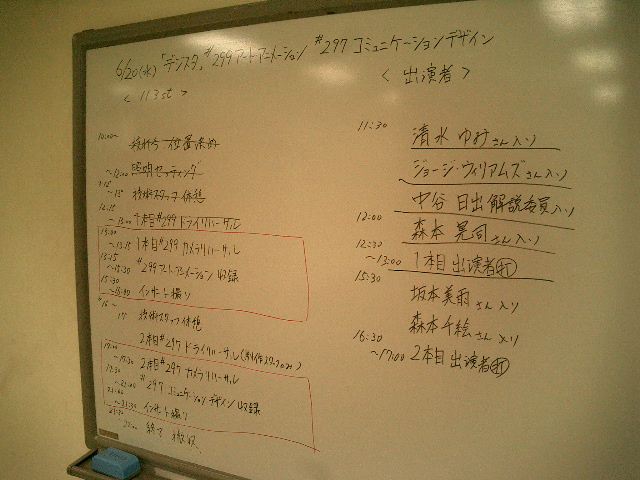 6/20(水)「デジスタ」#299アートアニメーション #297コミュニケーションデザイン
<113st>
<出演者>
10:00~
~12:00 照明セッティング
技術スタッフ休憩
~13:00 1本目#299 ドライリハーサル
13:00
~13:15 1本目#299 カメラリハーサル
13:15
~15:30 #299アートアニメーション収録
15:30
インサート撮り
技術スタッフ休憩
2本目#297 ドライリハーサル
2本目#297 カメラリハーサル
#297 コミュニケーションデザイン収録
インサート撮り
終了
11:30 清水ゆみさん入り
ジョージ・ウィリアムズさん入り
中谷日出解説委員入り
12:00 森本晃司さん入り
12:30
~13:00 1本目出演者打
15:30
坂本美雨さん入り
森本千絵さん入り
16:30
~17:00 2本目出演者打